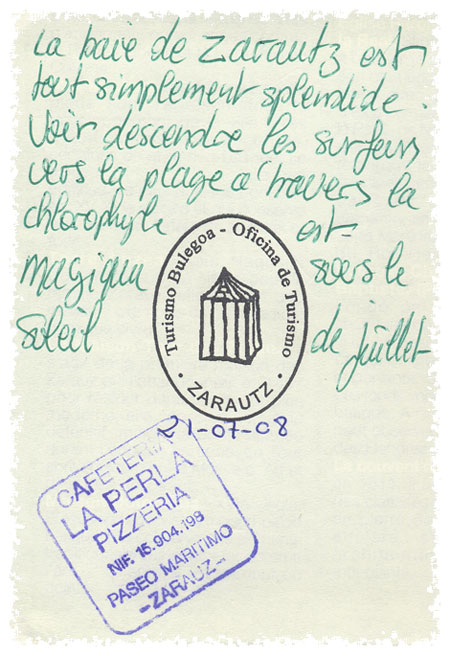 La baie de Zarautz est
tout simplement splendide.
Voir descendre les surfeurs
vers la plage à travers la
chlorophyle est
magique sous le
soleil de juillet
Turismo Bulegoa - Oficina de Turismo
• ZARAUTZ •
21-07-08
CAFETERIA
LA PERLA
PIZZERIA
NIF. 15.904.198
PASEO MARITIMO
-ZARAUZ-